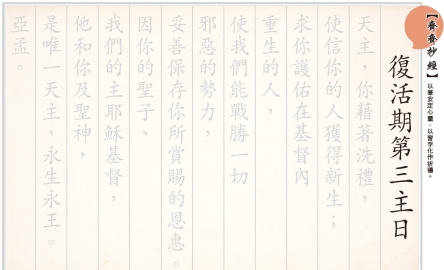 【齊齊抄經】
以筆安定心靈，以習字化作祈禱。
復活期第三主日
天主，你藉著洗禮，
使信你的人獲得新生；
求你護佑在基督內
重生的人，
使我們能戰勝一切
邪惡的勢力，
妥善保存你所賞賜的恩惠。
因你的聖子、
我們的主耶穌基督，
他和你及聖神，
是唯一天主，永生永王。
亞孟。